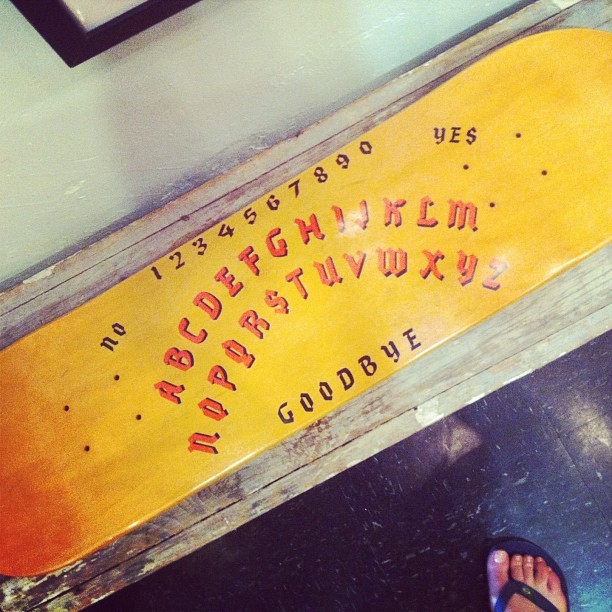 NO
1 2 3 4 5 6 7 8 9 0
YES
A B C D E F G H I J K L M
N O P Q R S T U V W X Y Z
GOODBYE